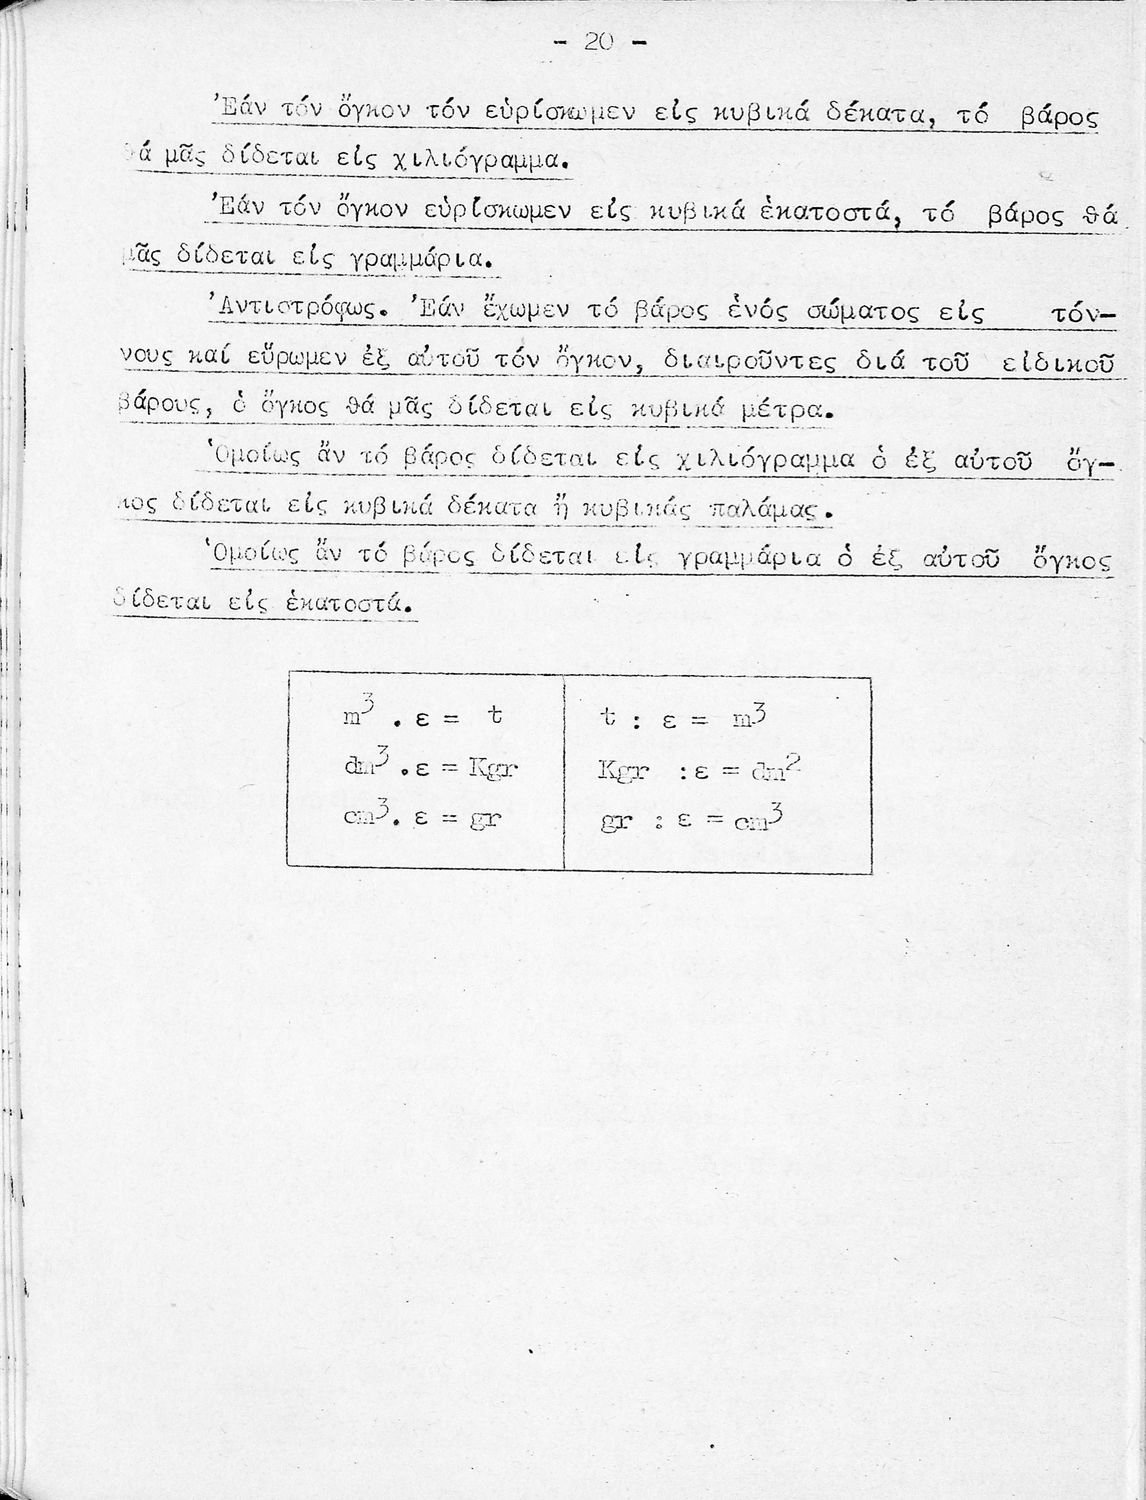 - 20 -
Ἐάν τόν ὄγκον τόν εὑρίσκωμεν εἰς κυβικά δέκατα, τό βάρος
θά μᾶς δίδεται εἰς χιλιόγραμμα.
Ἐάν τόν ὄγκον εὑρίσκωμεν εἰς κυβικά ἑκατοστά, τό βάρος θά
μᾶς δίδεται εἰς γραμμάρια.
Ἀντιστρόφως. Ἐάν ἔχωμεν τό βάρος ἑνός σώματος εἰς τόν-
νους καί εὕρωμεν ἐξ αὐτοῦ τόν ὄγκον, διαιροῦντες διά τοῦ εἰδικοῦ
βάρους, ὁ ὄγκος θά μᾶς δίδεται εἰς κυβικά μέτρα.
Ὁμοίως ἄν τό βάρος δίδεται εἰς χιλιόγραμμα ὁ ἐξ αὐτοῦ ὄγ-
κος δίδεται εἰς κυβικά δέκατα ἤ κυβικάς παλάμας.
Ὁμοίως ἄν τό βάρος δίδεται εἰς γραμμάρια ὁ ἐξ αὐτοῦ ὄγκος
δίδεται εἰς ἑκατοστά.
m³ . ε = t
dm³ . ε = Kgr
cm³. ε = gr
t : ε = m³
Kgr : ε = dm²
gr : ε = cm³